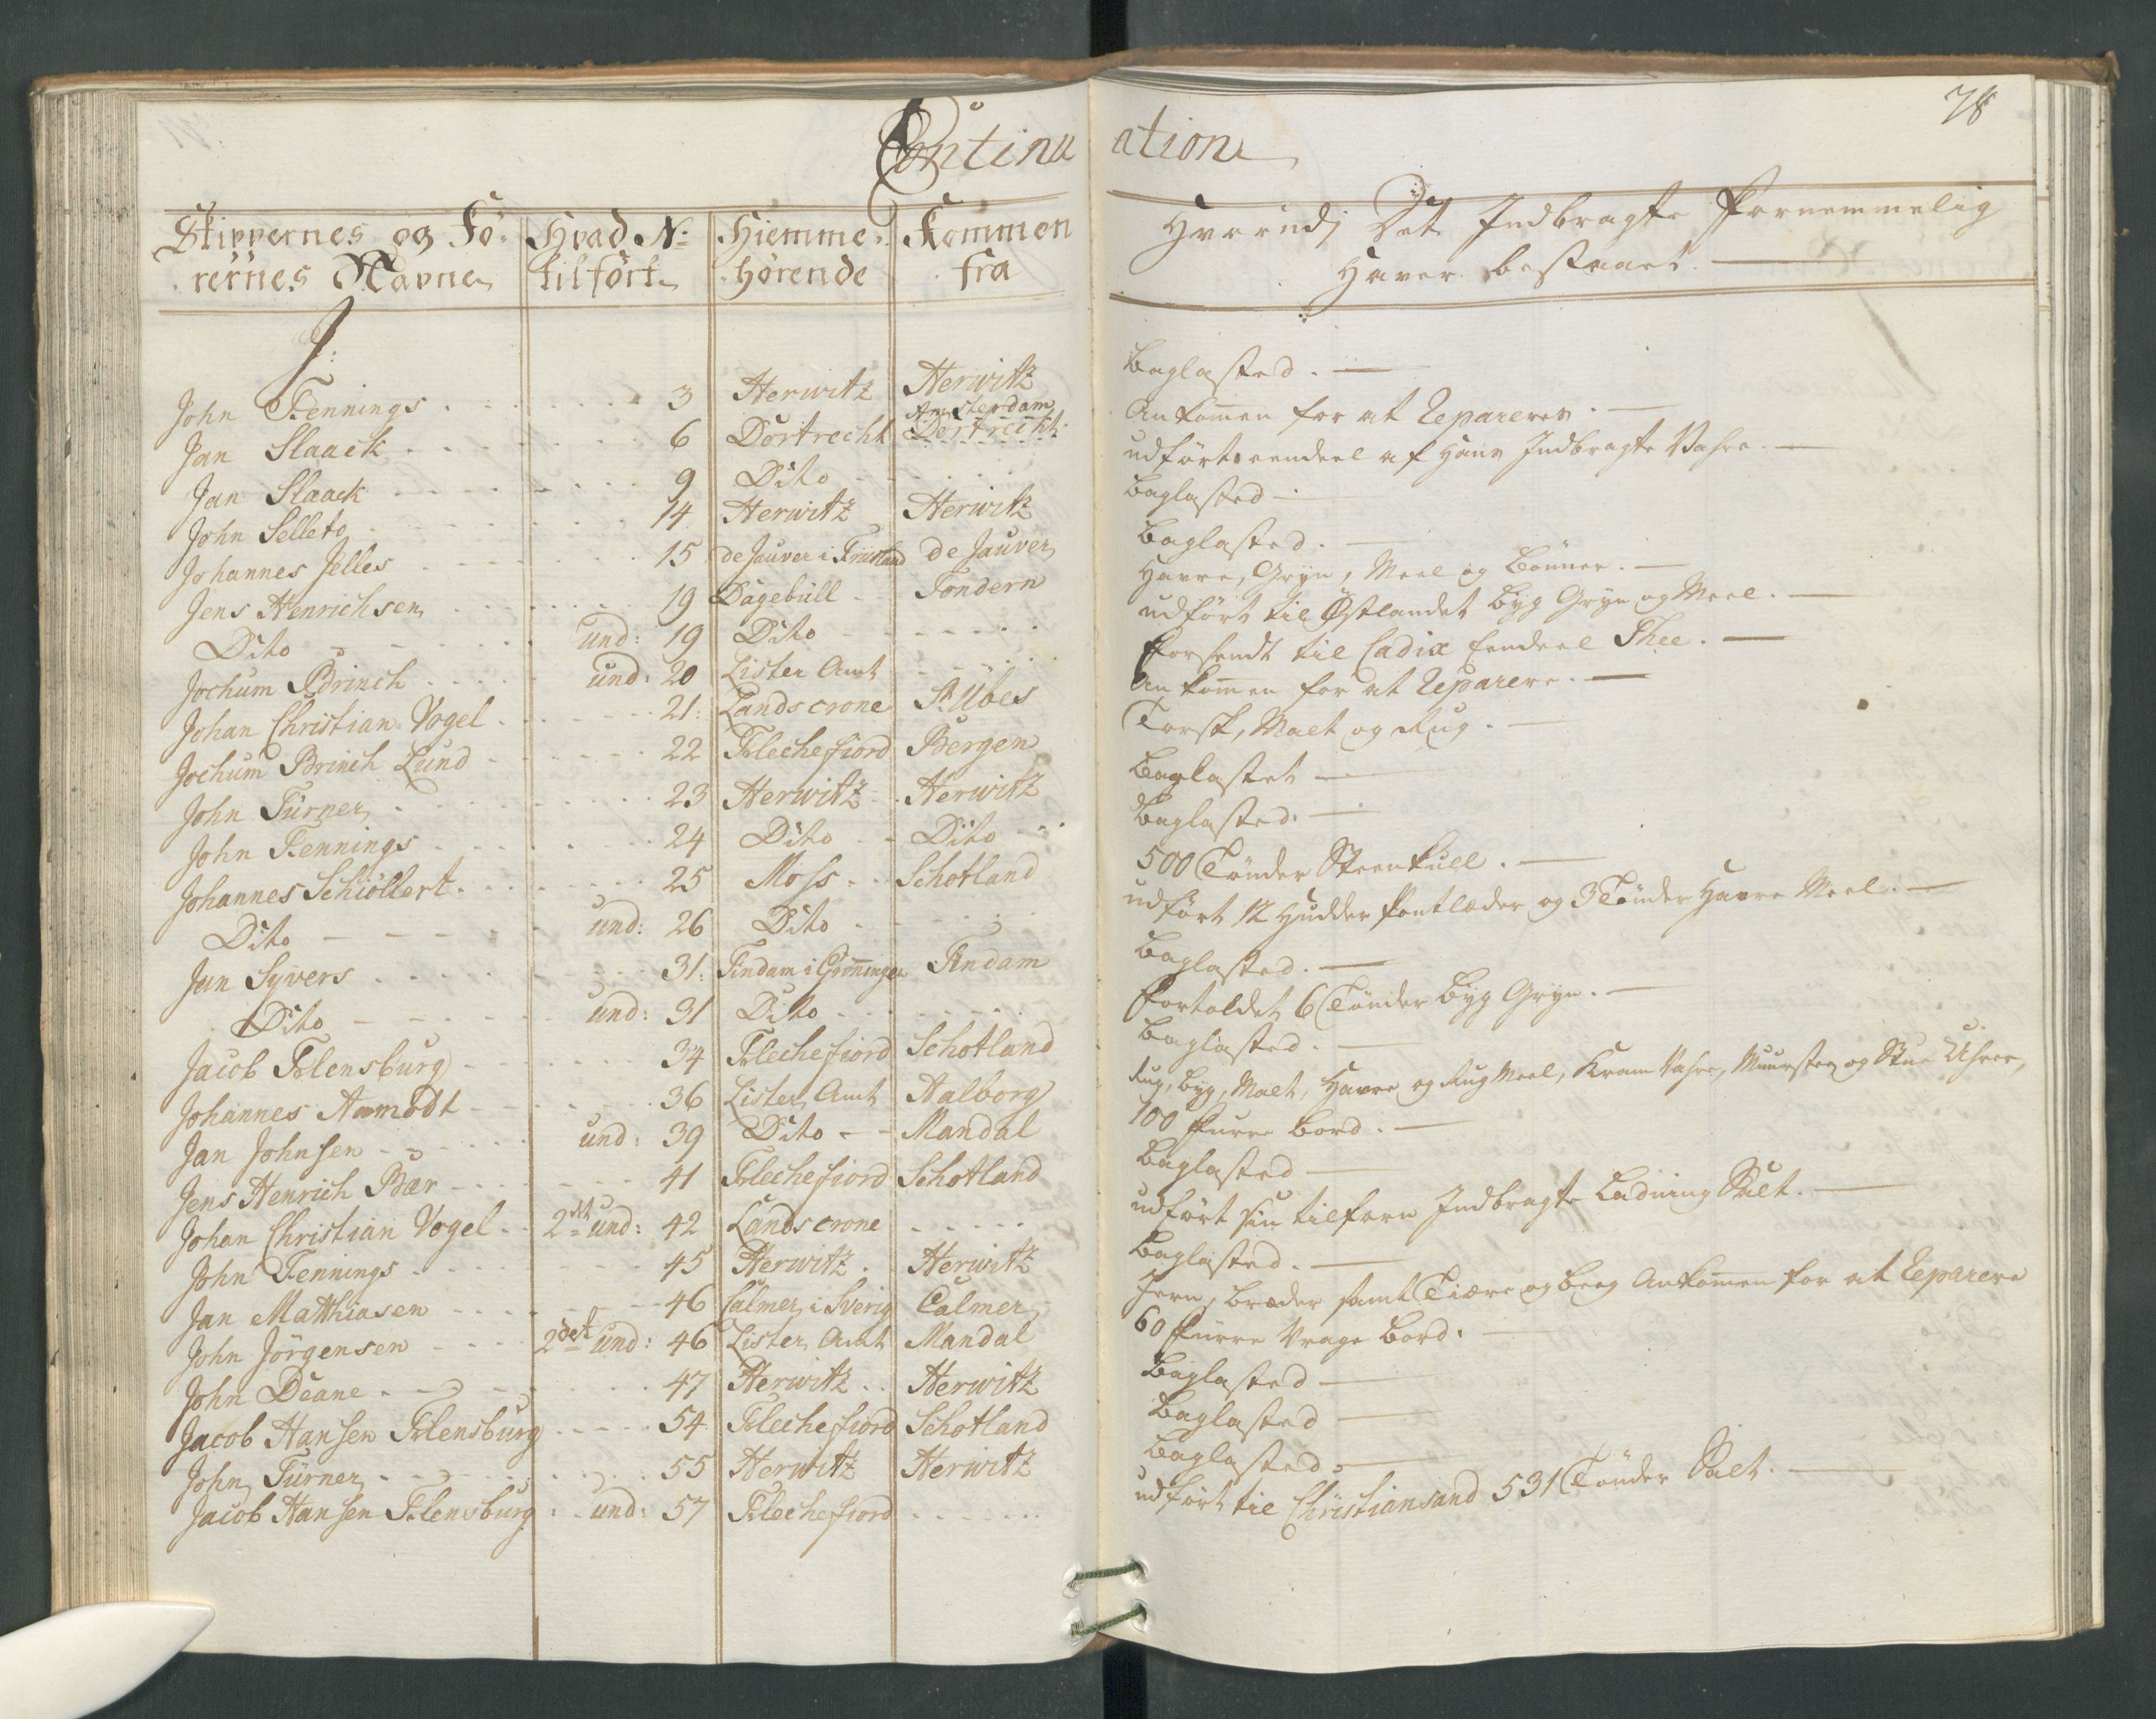 78
Continuation
Skippernes og Fö- Hvad No Hiemme- Kommen Hvorudj Det Indbragte Fornemmelig
rernes Navne tilfört hörende fra Haver bestaaet.
J:
John Fennings 3 Herwitz Herwitz Baglasted.
Amsterdam
Jan Slaack 6 Dortrecht Dortrecht Ankommen for at Reparere.
Jan Slaack 9 Dito udfört eendeel af Hans Indbragte Vahre
John Selleto 14 Herwitz Herwitz Baglasted
Johannes Jelles 15 de Jauver i Friisland de Jauver Baglasted.
Jens Henrichsen 19 Dagebüll Tondern Havre, Gryn, Meel og Bönner.
Dito und: 19 Dito udfört til Östlandet Byg Gryn og Meel.
Jochum Brinch und: 20 Lister Amt Forsendt til Cadix Eendeel Thee.
Johan Christian Vogel 21: Landscrone St Ubes Ankommen for at Reparere.
Jochum Brinch Lund 22 Flechefiord Bergen Torsk, Malt og Rug.
John Türner 23 Herwitz Herwitz Baglastet
John Fennings 24 Dito Dito Baglasted.
Johannes Schiöllert 25 Moss Schotland 500 Tönder Steenkull.
Dito und: 26 Dito udfört 12 Hudder Pontlæder og 3 Tönder Havre Meel.
Jan Syvers 31: Findam i Gröningen Findam Baglasted.
Dito und: 31 Dito Fortoldet 6 Tönder Byg Gryn.
Jacob Flensburg 34 Flechefiord Schotland Baglasted.
Johannes Aamodt 36 Lister Amt Aalborg Rug, Byg, Malt, Havre og Rug Meel, Kram Vahre, Muursteen og Stue Uhrer,
Jan Johnsen und: 39 Dito Mandal 100 Furre Bord.
Jens Henrich Bær 41 Flechefiord Schotland Baglasted
Johan Christian Vogel 2det und: 42 Landscrone udfört sin tilforn Indbragte Ladning Salt.
John Fennings 45 Herwitz Herwitz Baglasted.
Jan Matthiasen 46 Calmer i Sverig Calmer Jern, Bræder samt Tiære og Beeg Ankommen for at Reparere
John Jörgensen 2det und: 46 Lister Amt Mandal 60 Furre Vrage Bord.
John Deane 47 Herwitz Herwitz Baglasted
Jacob Hansen Flensburg 54 Flechefiord Schotland Baglasted
John Türner 55 Herwitz Herwitz Baglasted
Jacob Hansen Flensburg und: 57 Flechefiord udfört til Christiansand 531 Tönder Salt.